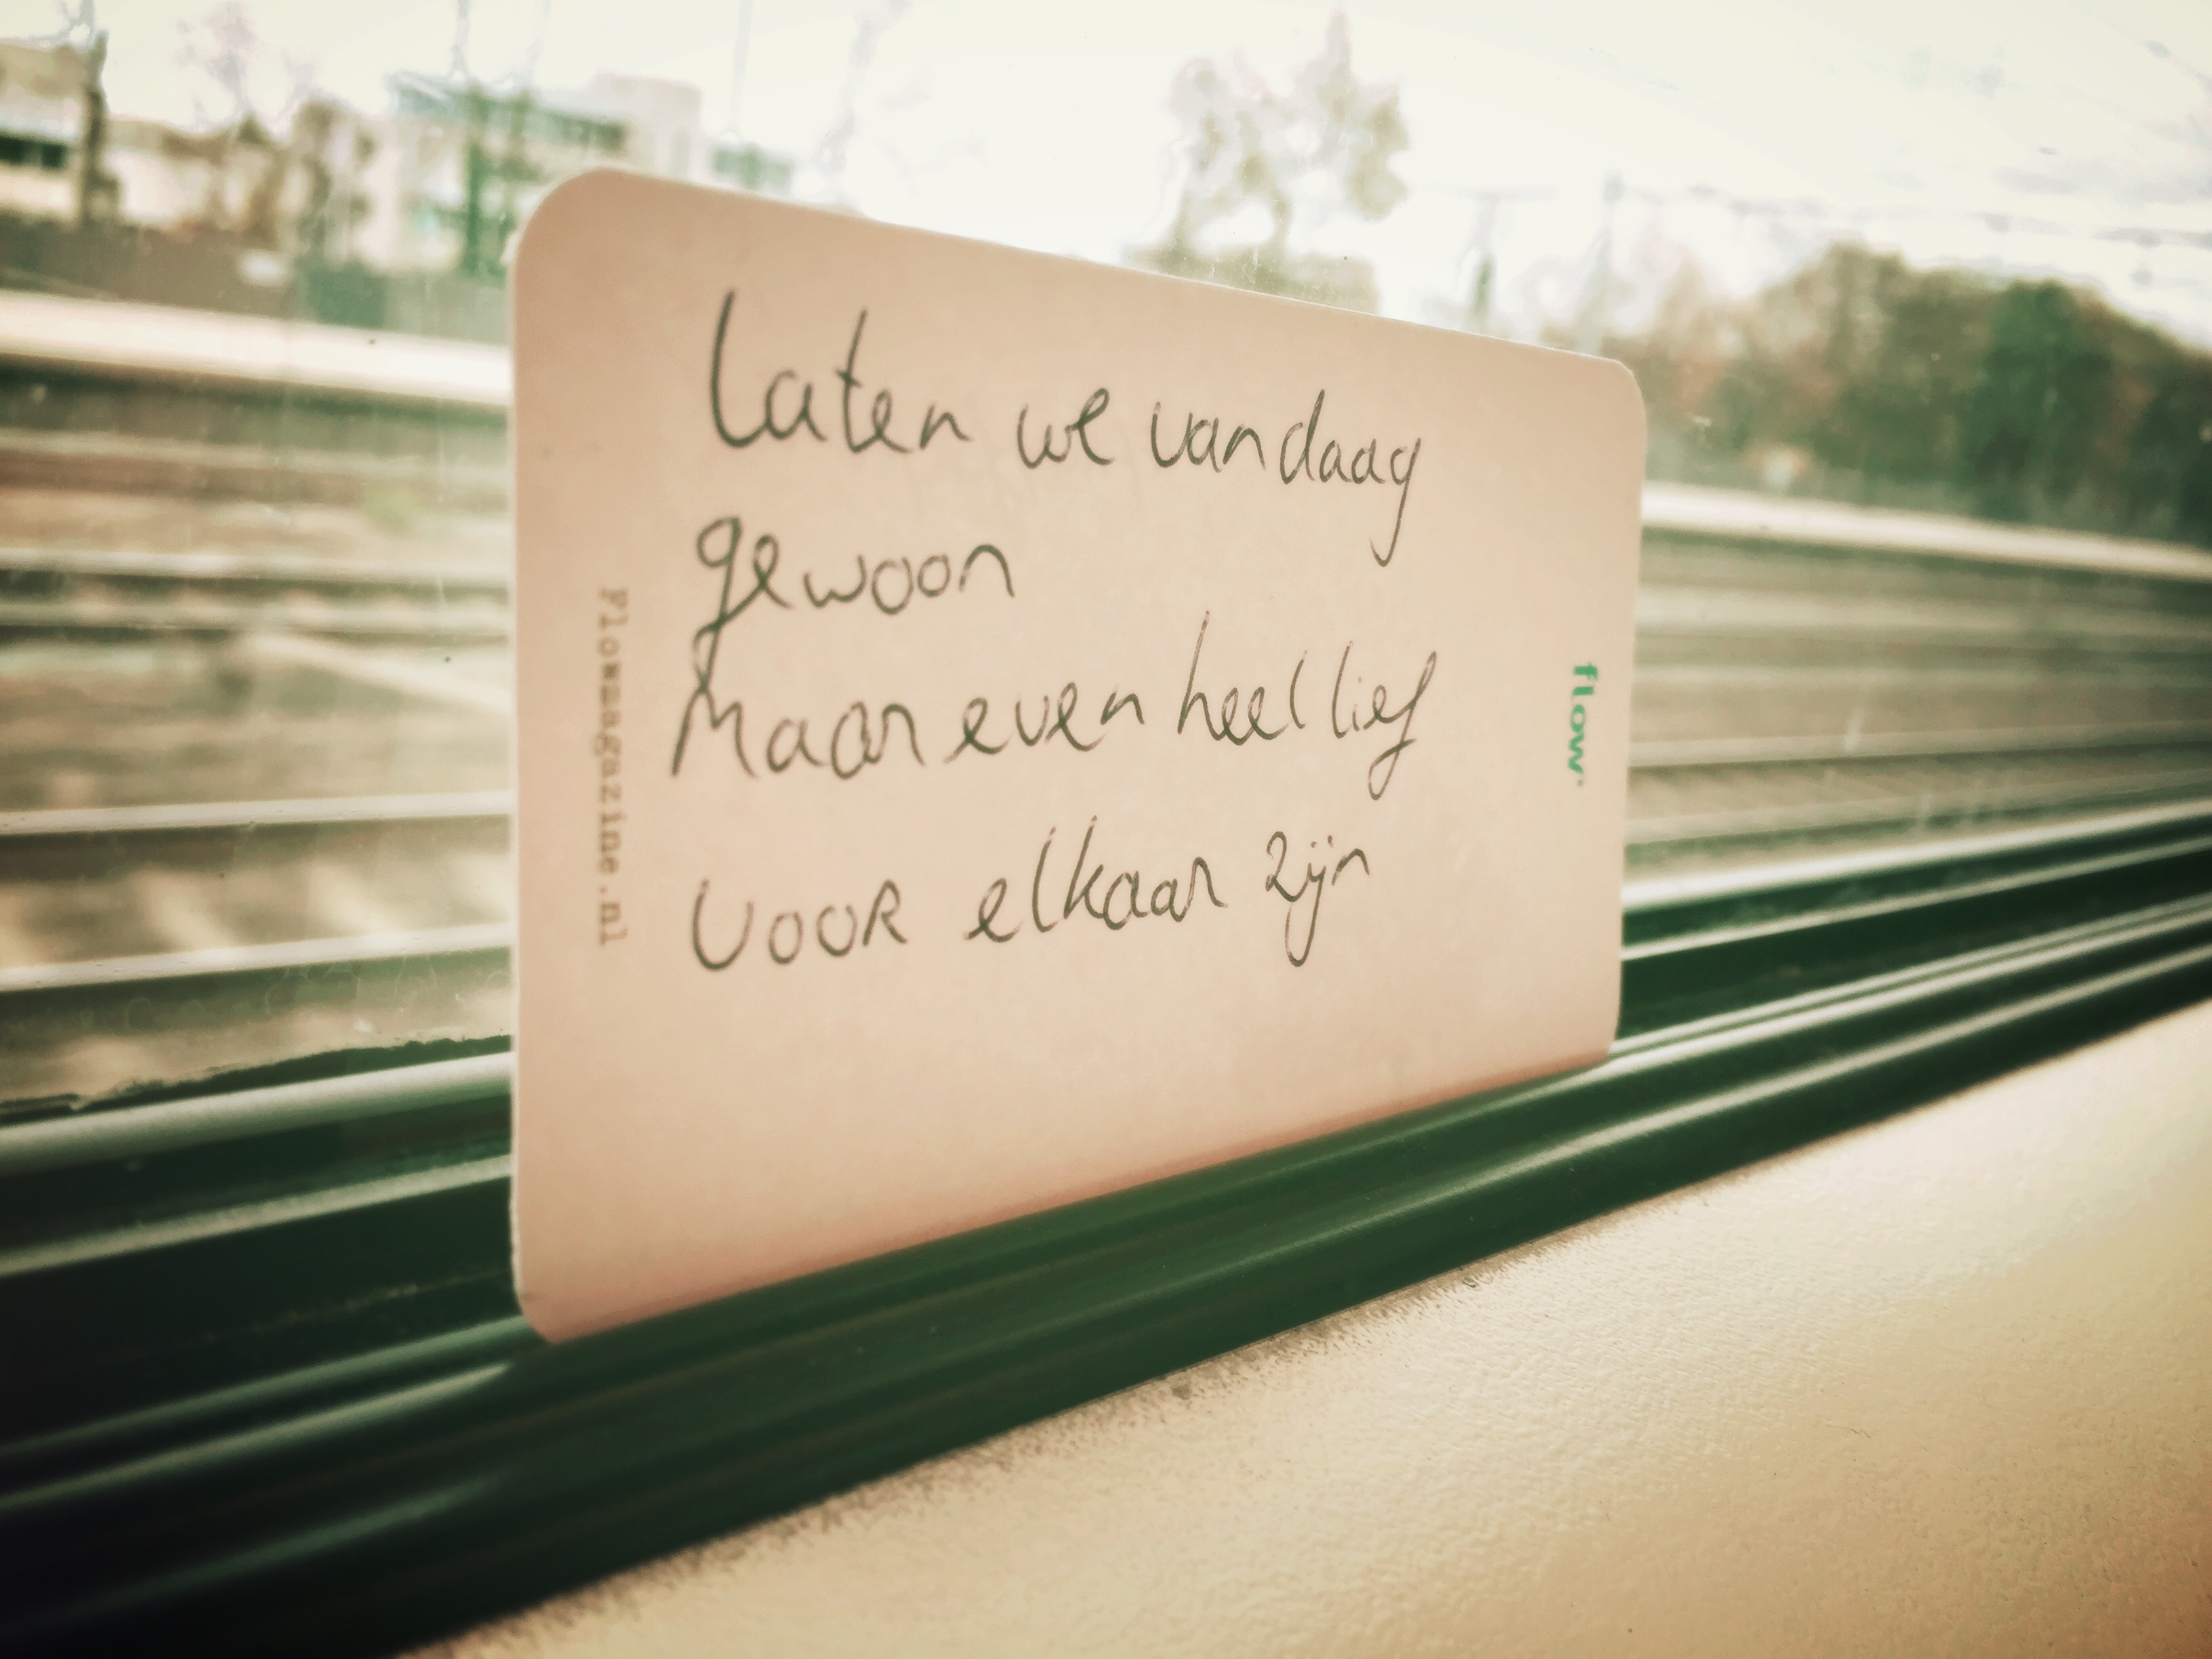 Laten we vandaag
gewoon
Maar even heel lief
voor elkaar zijn
Flowmagazine.nl
flow